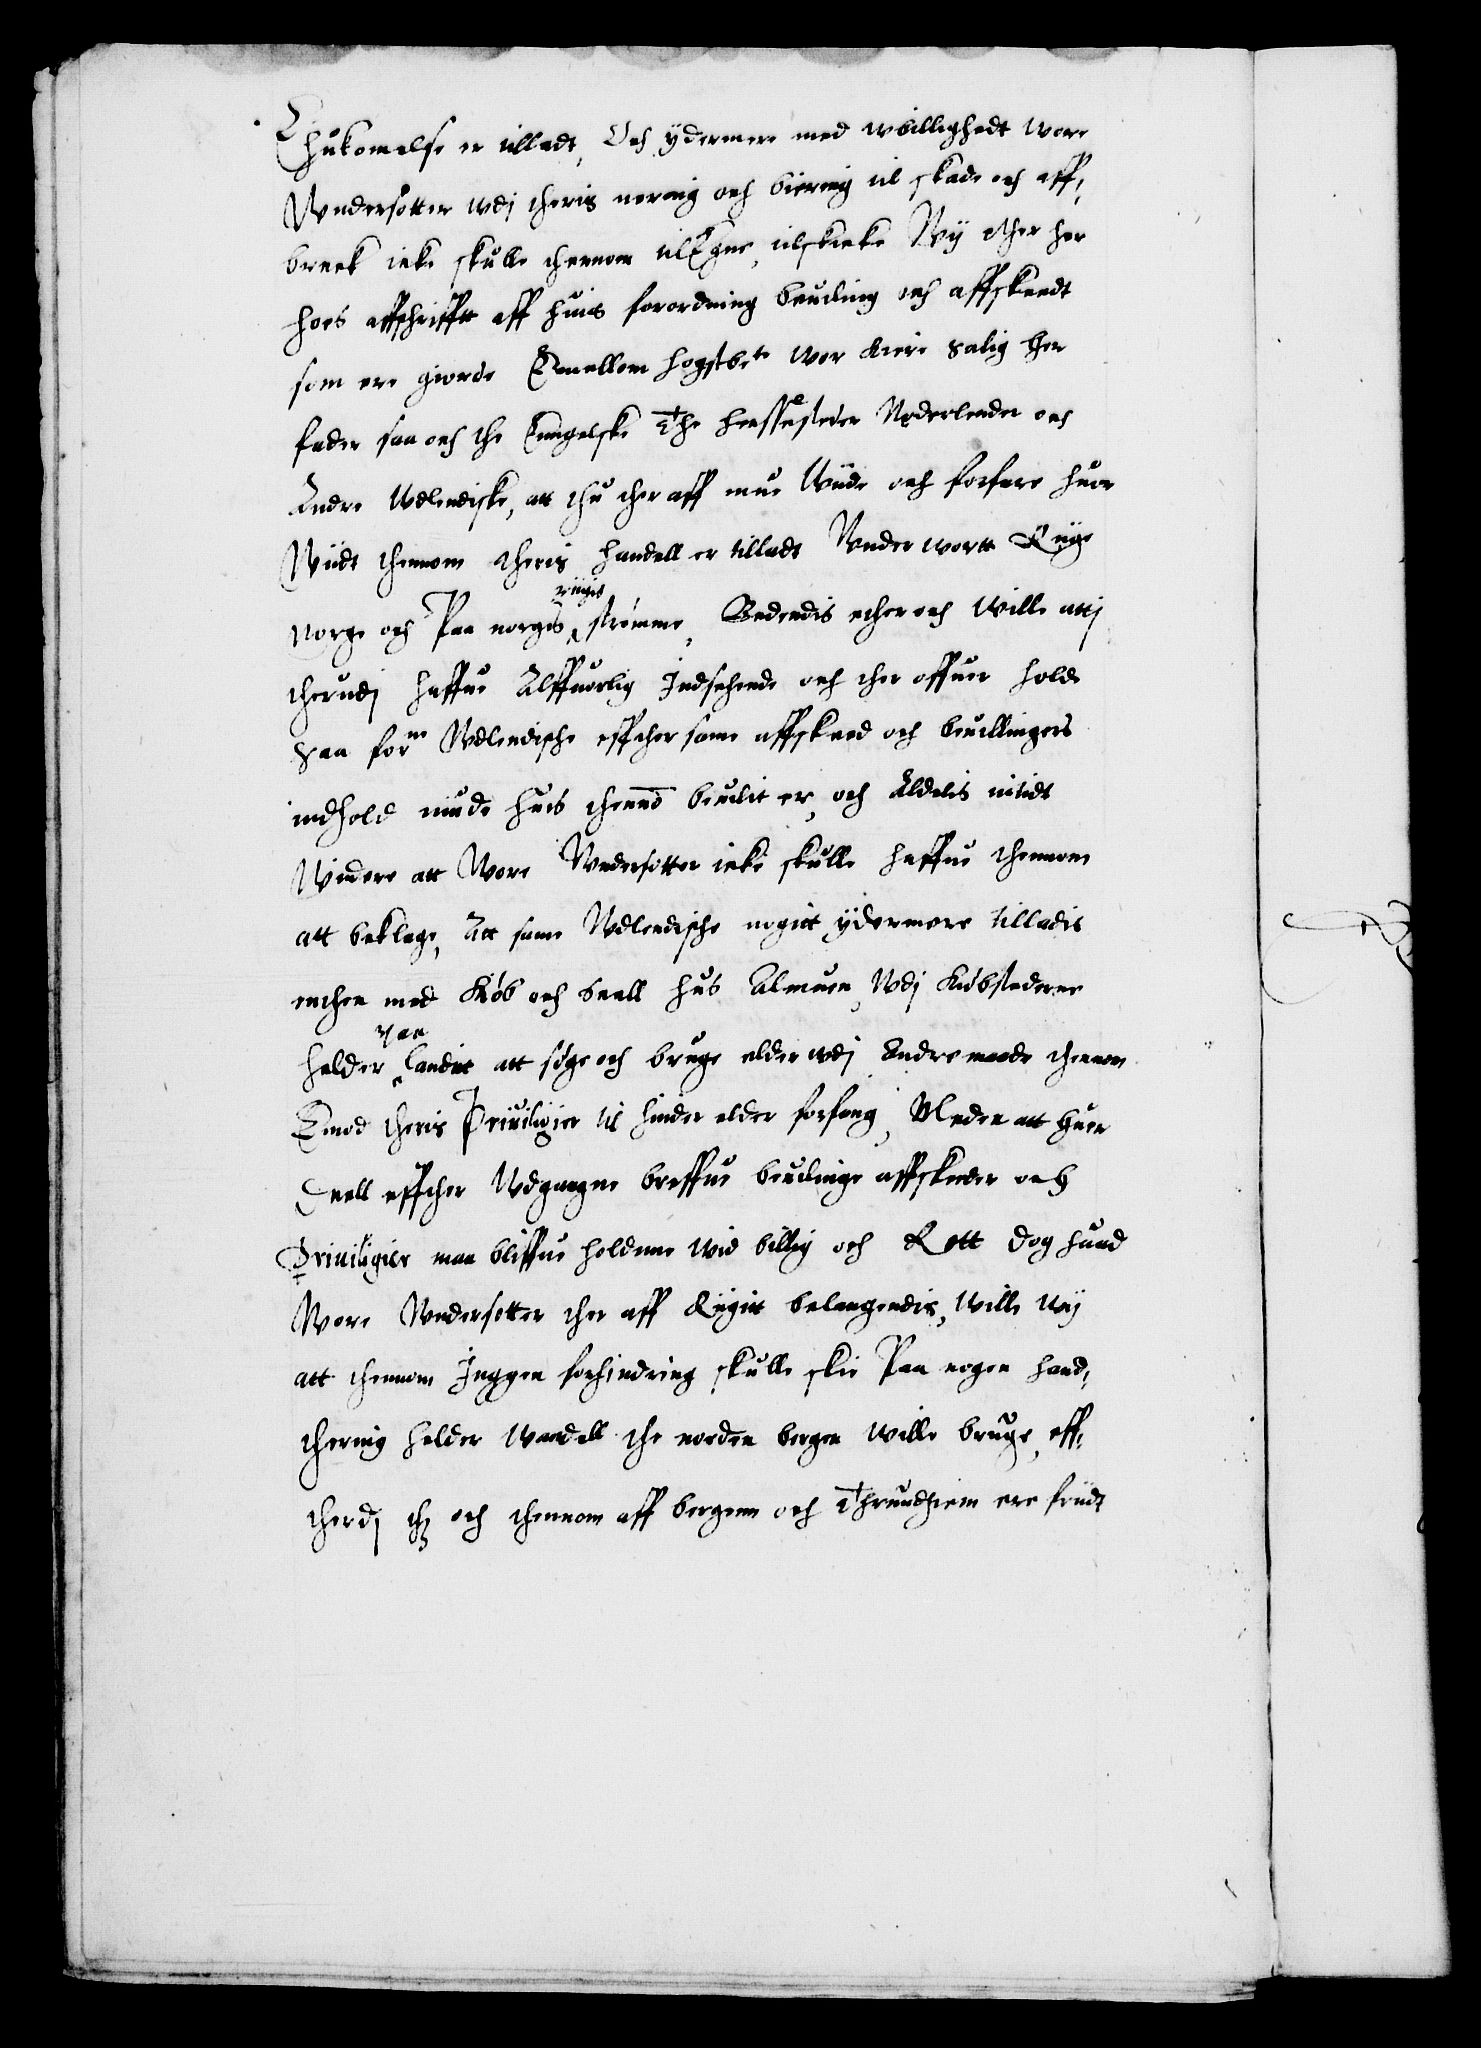 Thukomelse er tilladt, Och ydermere med wbillighedt wore
Wndersotter wdj theris nering och biering til skade och aff,
breck icke skulle thennom tilEgne, tilskicke Wij ether her
hoes affschrifftt aff huis forordning beuiling och affskeedt
som ere giorde Emellom hogstbete wor kiere Salig her
fader saa och the Enngelske The hensesteder Nederlender och
Andre Wdlendiske, att thu ther aff mue Wiide och forfare huor
Wiidt thennom theris handell er tilladt Wnder wortt Rige
Norge och Paa norgis riigis strømme, Bedendis ether och Wille attj
therudj haffue Alffuorlig Indseende och ther offuer holde
Saa forne Wdlendische effther same affskeed och beuillingers
indhold niude huis thennom beuilit er, och Aldelis intidt
Widere att Wore Wndersotter icke skulle haffue thennom
att beklage, Att same Wdlendische nogitt ydermere tilladis
enthen med Køb och Saell hus Almuen, Wdj Kiøbstederne
helder paa Landitt att søge och bruge elder wdj Andre maade thennom
Emod theris Priuiligier til hinder elder forfang, Meden att huer
Deell effther Wdgangne breffue beuilinge affskeeder och
Priuiligier maa bliffue holdenne Wid billig och Rett Dog huad
Wore Wndersotter ther aff Riigitt belangendis, Wille Wij
att thennom Inggen forhindring skulle skie Paa nogen hand,
thering helder Wandell the norden bergen Wille bruge, eff,
therdj the och thennom aff bergenn och Thrundhiem ere friidt